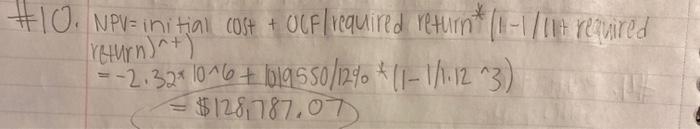 #10. NPV= initial cost + OCF/required return * (1-1/(1+ required
return)^t)
= -2.32*10^6 + 1019550/12% * (1-1/1.12^3)
= $128,787.07